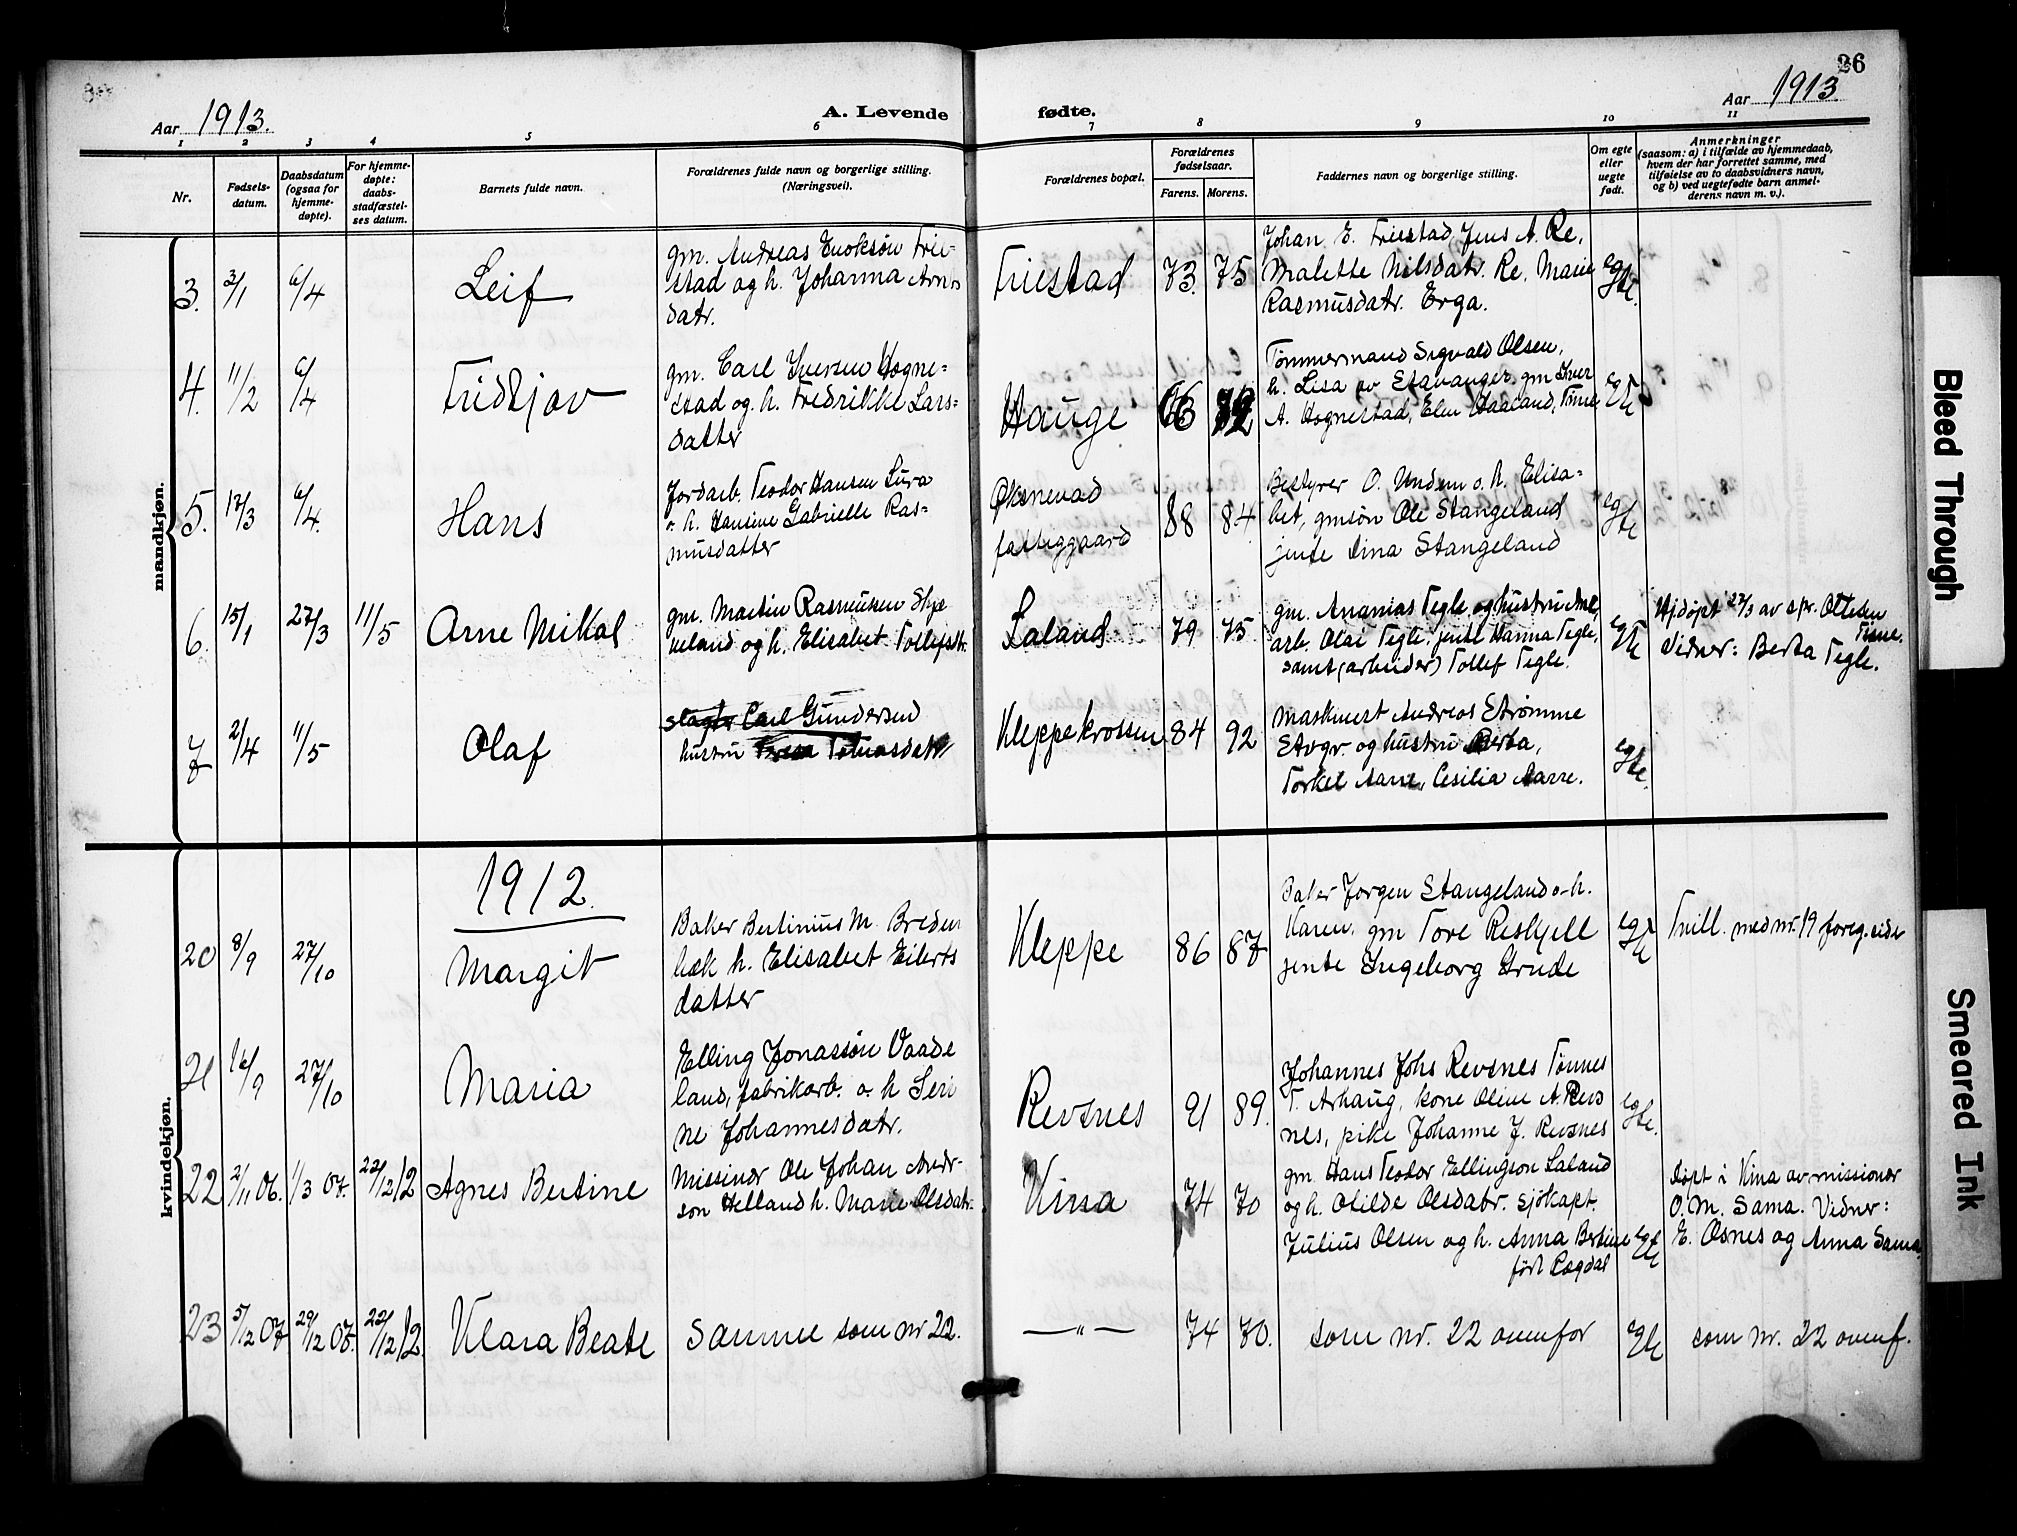 26
Aar 1913.
A. Levende fødte.
Aar 1913
1 2 3 4 5 6 7 8 9 10 11
Nr.
Fødsels-
datum.
Daabsdatum
(ogsaa for
hjemme-
døpte).
For hjemme-
døpte:
daabs-
stadfæstel-
ses datum.
Barnets fulde navn.
Forældrenes fulde navn og borgerlige stilling.
(Næringsvei).
Forældrenes bopæl.
Forældrenes
fødselsaar.
Farens. Morens.
Faddernes navn og borgerlige stilling.
Om egte
eller
uegte
født.
Anmerkninger
(saasom: a) i tilfælde av hjemmedaab,
hvem der har forrettet samme, med
tilføielse av to daabsvidners navn,
og b) ved uegtefødte barn anmel-
derens navn m. v.).
mandkjøn.
3. 3/1 6/4 Leif
gm. Andreas Enoksøn Frie-
stad og h. Johanna Arn-
datr.
Friestad 73. 75
Johan E. Friestad Jens A. Re,
Malette Nilsdatr. Re. Marie
Rasmusdatr. Erga.
egte.
4. 11/2 6/4 Fridtjov
gm. Carl Iversen Hogne-
stad og. h. Fredrikke Lars-
datter
Hauge 66 72
Tømmermand Sigvald Olsen,
h. Lisa av Stavanger, gm Iver
A. Hognestad, Elen Haaland, Time
egte
5. 17/3 6/4. Hans
Jordarb. Teodor Hansen Lura
o. h. Hansine Gabrielle Ras-
musdatter
Øksnevad
fattiggaard
88 84
Bestyrer O. Undem o. h. Elisa-
bet, gmsøn Ole Stangeland
jente Dina Stangeland
egte
6. 15/1 27/3 11/5 Arne Mikal
gm. Martin Rasmussen Skjæ
veland og h. Elisabet Tollefsdtr.
Laland 79 75
gm. Ananias Tegle og hustru Ane,
arb. Olai Tegle. jente Hanna Tegle,
samt (arbeider) Tollef Tegle.
egte
Hjdøpt 27/3 av spr. Ottesen
Time.
Vidner: Berta Tegle.
7 2/4 11/5 Olaf
Carl Gundersen
hustru Tomasdatr
Kleppekrossen 84 92
Maskinist Andreas Strømme
Stvgr. og hustru Berta,
Torkel Aarre, Cesilia Aarre.
egte.
kvindekjøn.
1912.
20 8/9 27/10 Margit
Baker Bertinius M. Breden
bæk h. Elisabet Eilerts
datter
Kleppe 86 87
Baker Jørgen Stangeland o. h.
Karen, gm Tore Reskjell
jente Ingeborg Grude
egte
Tvill. med nr. 19 foreg. side
21 16/9 27/10 Maria
Elling Jonassøn Vaade
land, fabrikarb. o. h Seri
ne Johannesdatr.
Revsnes 91 89.
Johannes Johs Revsnes Tønnes
T. Arhaug, kone Oline A. Revs
nes, pike Johanne J. Revsnes
egte.
22 2/11 06. 1/3 07. 22/12 12 Agnes Bertine
Missinær Ole Johan Andr-
son Helland h. Marie Olsdatr.
Kina 74 70
gm. Hans Teodor Ellingson Laland
og h. Otilde Olsdatr. sjøkapt.
Julius Olsen og h. Anna Bertine
født Røgdal
egte
døpt i Kina av missionær
O. M. Sama. Vidner:
E. Osnes og Anna Sama.
23 5/12 07 29/12 07. 22/12 12. Klara Beate
Samme som nr 22.
— " — 74 70.
som nr. 22 ovenfor
egte
som nr. 22 ovenf.
Bleed Through
Smeared Ink